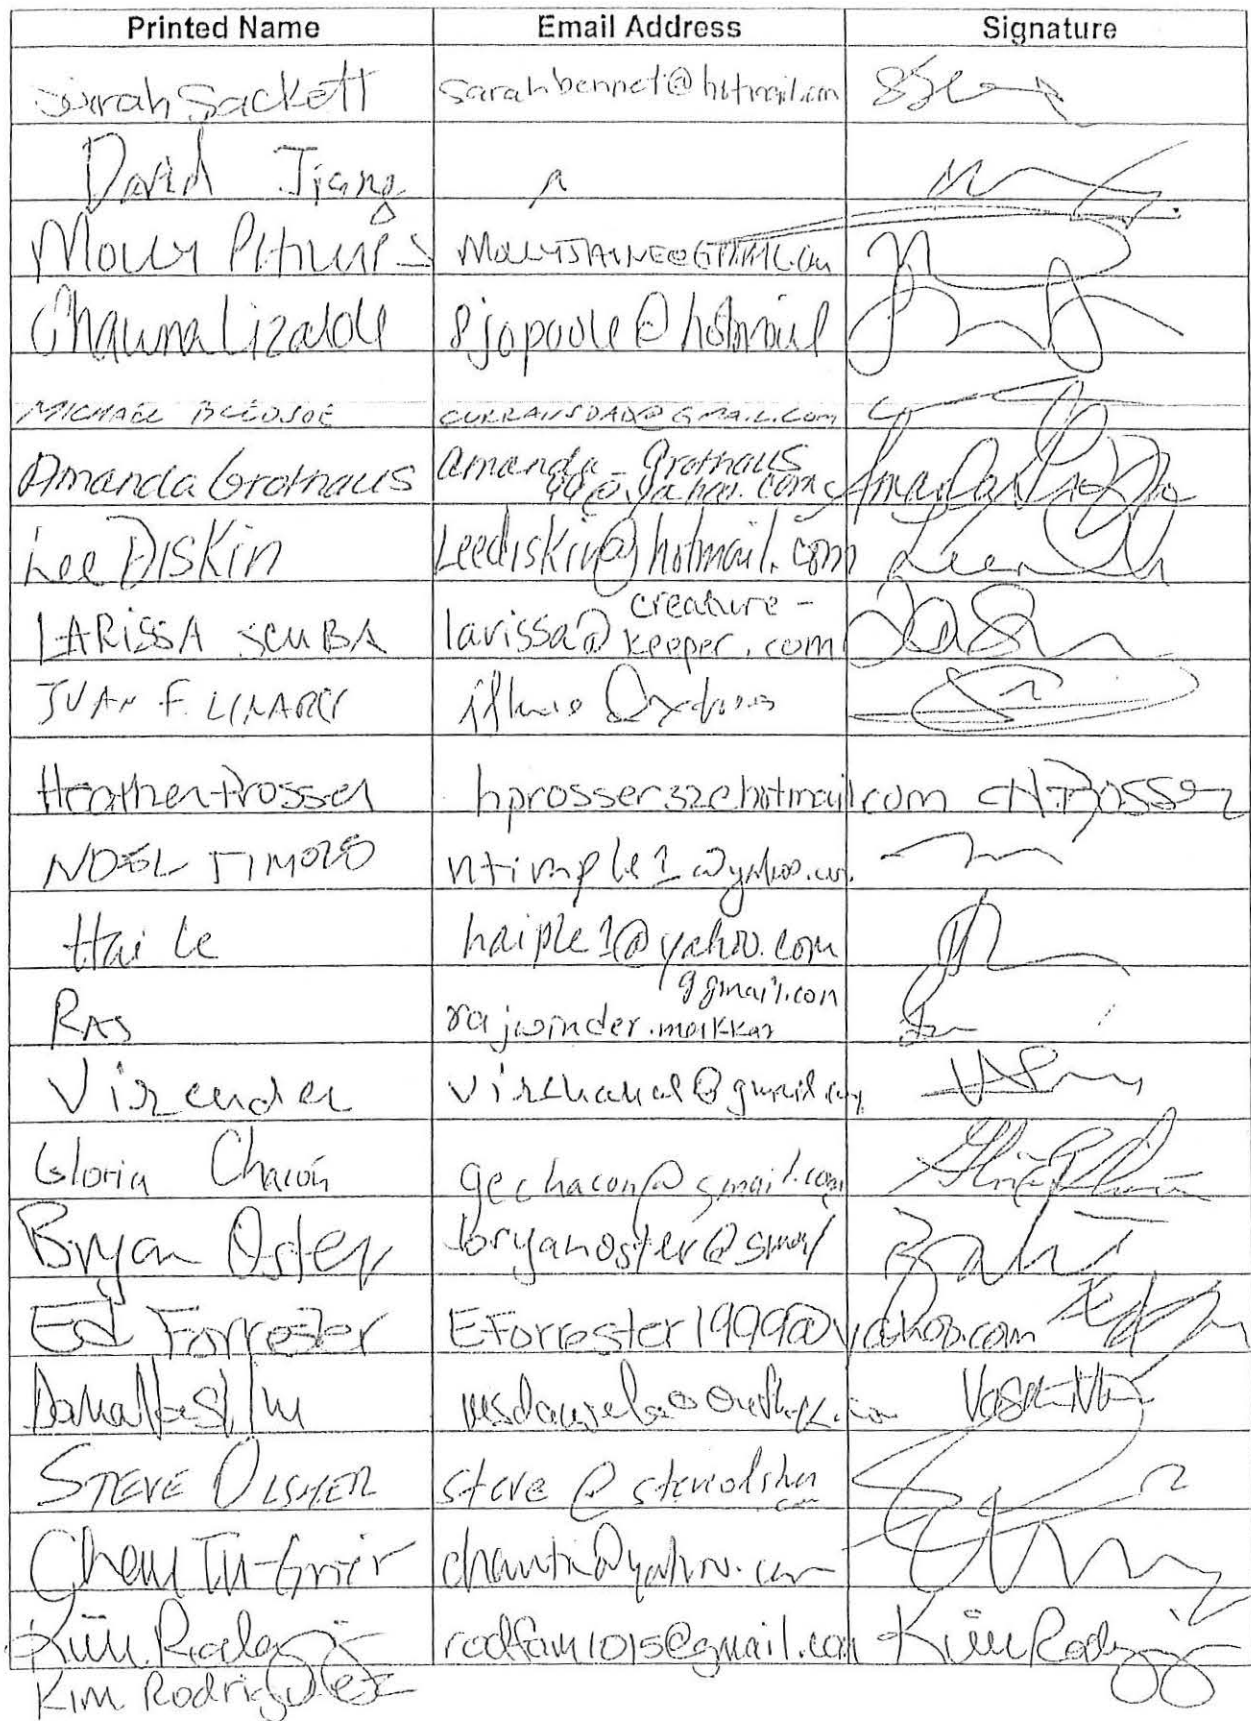 Printed Name Email Address Signature
Sarah Sackett sarahbennet@hotmail.com
David Jiang
Molly Phillips MOLLYJAYNE@GMAIL.com
Chauna Lizalde 8jopoole@hotmail
MICHAEL BLEDSOE CURRANSDAD@GMAIL.COM
Amanda Grothaus amanda_grothaus
99@yahoo.com
Lee Diskin Leediskin@hotmail.com
LARISSA SCUBA larissa@creature-
keeper.com
JUAN F. LINARES
Heather Prosser hprosser32@hotmail.com H Prosser
NOEL ntimple1@yahoo.com
Hai Le haiple1@yahoo.com
@gmail.com
RAJ rajwinder.makkar
Virender virchahal@gmail.com
Gloria Chacón gechacon@gmail.com
Bryan Oster bryanoster@gmail
Ed Forrester EForrester1999@yahoo.com
Dana
STEVE OLSHER steve@steveolsher
.com
Chau Tu-Grier chautu@yahoo.com
Kim Rodfam1015@gmail.com Kim
Kim Rodriguez